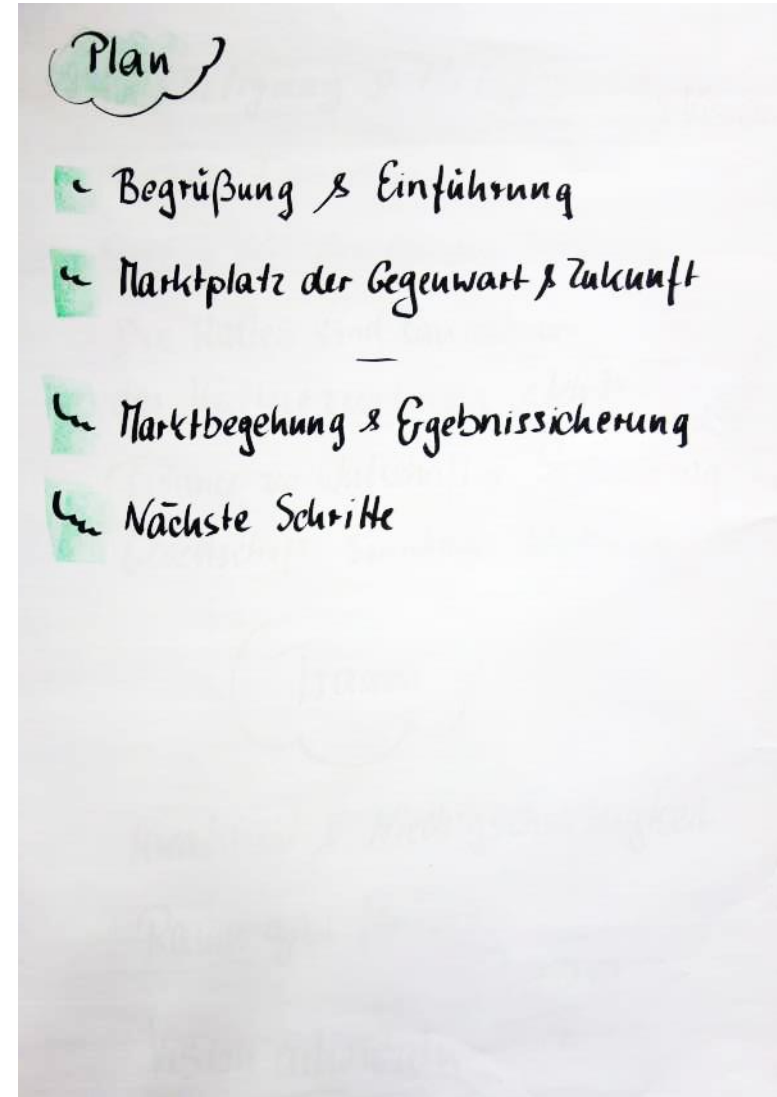 Plan
Begrüßung & Einführung
Marktplatz der Gegenwart & Zukunft
—
Marktbegehung & Ergebnissicherung
Nächste Schritte